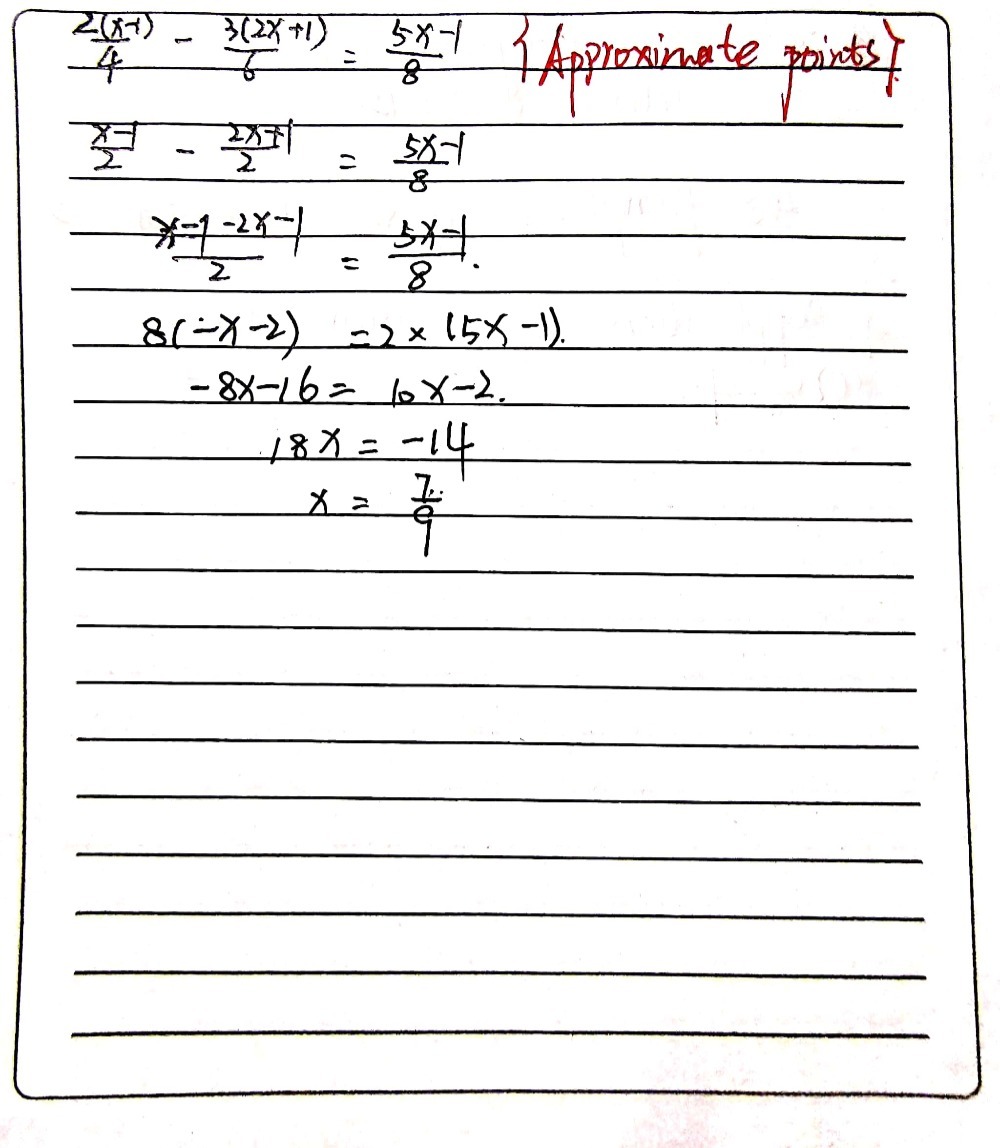 2(x-1)/4 - 3(2x+1)/6 = 5x-1/8 {Approximate points}
x-1/2 - 2x+1/2 = 5x-1/8
x-1-2x-1/2 = 5x-1/8.
8(-x-2) = 2×(5x-1).
-8x-16 = 10x-2.
18x = -14
x = 7/9